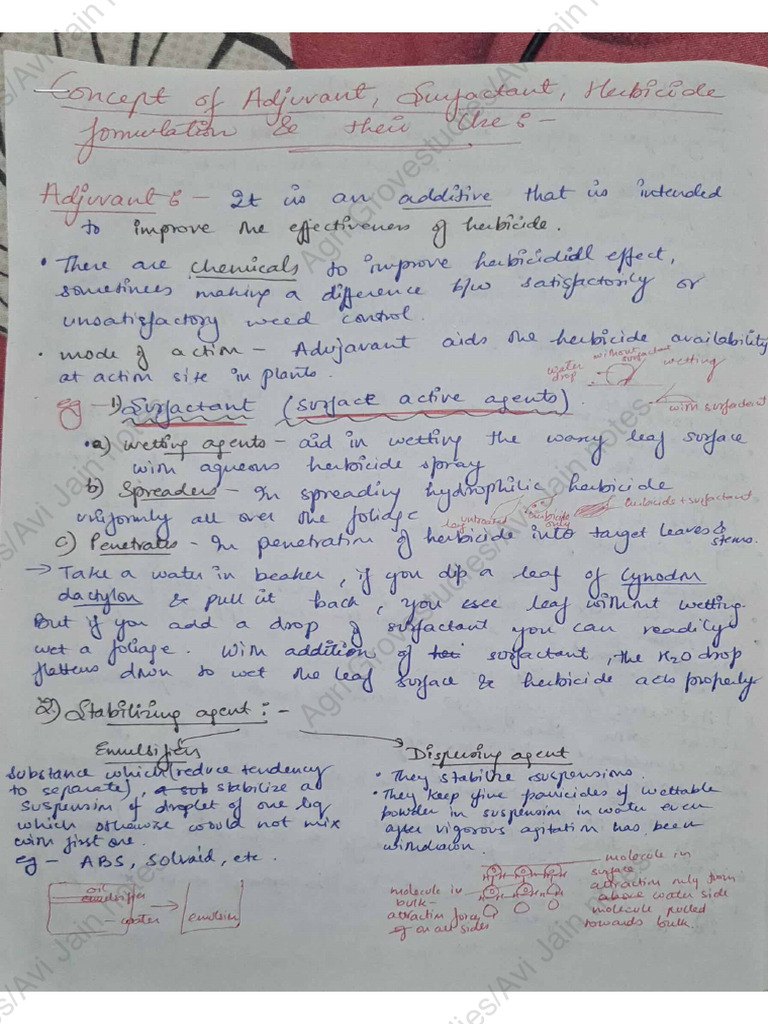 Concept of Adjuvant, Surfactant, Herbicide
fomulation & their Use :-
Adjuvant :- It is an additive that is intended
to improve the effectiveness of herbicide.
• There are chemicals to improve herbicidial effect,
sometimes making a difference b/w satisfactorily or
unsatisfactory weed control.
• mode of action - Adujavant aids the herbicide availability
at action site in plants.
water drop
without surfactant
wetting
with surfactant
1) Surfactant (surface active agents).
• a) wetting agents - aid in wetting the waxy leaf surface
with aqueous herbicide spray
b) Spreaders - In spreading hydrophilic herbicide
uniformly all over the foliage
leaf untreated
herbicide only
herbicide + surfactant
c) Penetrates - In penetration of herbicide into target leaves & stems.
→ Take a water in beaker, if you dip a leaf of Cynodon
dactylon & pull it back, you see leaf without wetting.
But if you add a drop of surfactant you can readily
wet a foliage. With addition of surfactant, the H2O drop
flattens down to wet the leaf surface & herbicide acts properly
2) Stabilizing agent :-
Emulsifiers
Substance which (reduce tendency
to separate), stabilize a
suspension of droplet of one liq
which otherwise would not mix
with first one.
eg - ABS, Solvaid, etc.
oil
emulsifier
water
emulsion
Dispersing agent
• They stabilize suspensions.
• They keep fine particides of wettable
powder in suspension in water even
after vigorous agitation has been
withdrawn.
molecule in
bulk-
attraction forces
of on all sides
molecule in
surface
attraction only from
above water side
molecule pulled
towards bulk.
Agri Grovestudies/Avi Jain Notes